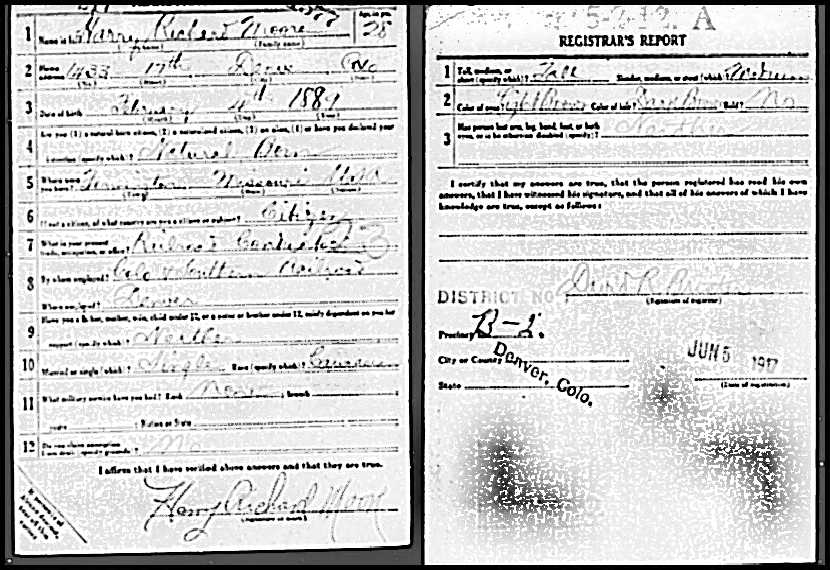 Age, in yrs.
1 Name in full Harry Richard Moore 28
(Given name) (Family name)
2 Home address 1433 17th Denver Colo
(No.) (Street)
3 Date of birth February 4th 1889
(Month) (Day) (Year)
4 Are you (1) a natural born citizen, (2) a naturalized citizen, (3) an alien, (4) or have you declared your
intention (specify which)? Natural Born
5 Where were you born? Missouri USA
6 If not a citizen, of what country are you a citizen or subject? Citizen
7 What is your present trade, occupation, or office? Railroad Conductor 23
8 By whom employed? Colo & Southern Railroad
Where employed? Denver
9 Have you a father, mother, wife, child under 12, or a sister or brother under 12, solely dependent on you for
support (specify which)? Neither
10 Married or single (which)? Single Race (specify which)? Caucasian
11 What military service have you had? Rank None ; branch
years ; Nation or State
12 Do you claim exemption from draft (specify grounds)? No
I affirm that I have verified above answers and that they are true.
Harry Richard Moore
(Signature or mark)
5-2-12. A
REGISTRAR'S REPORT
1 Tall, medium, or short (specify which)? Tall Slender, medium, or stout (which)? Medium
2 Color of eyes? Light Brown Color of hair? Dark Brown Bald? No
3 Has person lost arm, leg, hand, foot, or both eyes, or is he otherwise disabled (specify)? Neither
I certify that my answers are true, that the person registered has read his own
answers, that I have witnessed his signature, and that all of his answers of which I have
knowledge are true, except as follows:
DISTRICT NO.
(Signature of registrar)
Precinct B-2.
City or County Denver, Colo.
State
JUN 5 1917
(Date of registration)